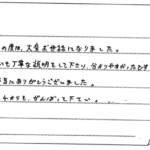 の度は、大変お世話になりました。
いも丁寧な説明をして下さり、分かりやすかったです
当にありがとうございました。
れからも、がんばって下さい。